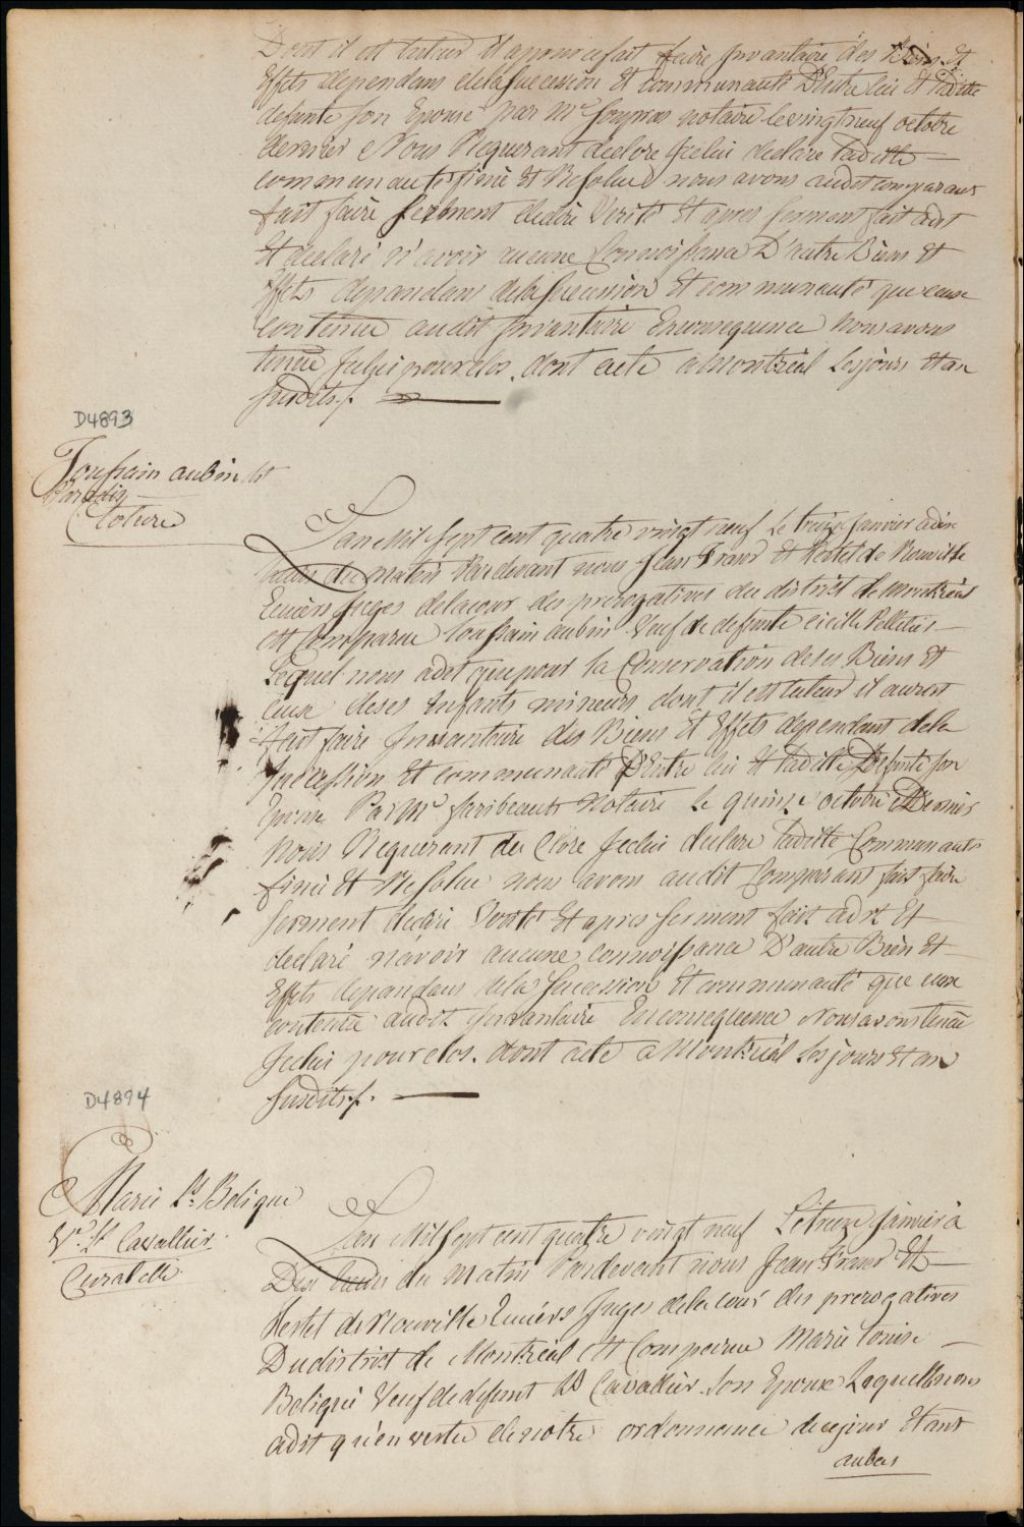 Dont il est tuteur il auroit fait faire Invantaire des Biens Et
Effets dependans dela Succession Et communauté D'Entre lui Et ladite
defunte son Epouse par Mre notaire le vingt neuf octobre
dernier Nous Requerant declore Icelui declare laditte
communauté finie Et Resolue nous avons audit comparant
fait faire Serment dedire Verité Et apres serment fait adit
Et declaré n'avoir aucune Connoissance D'autre Biens Et
Effets dependans dela Succession Et communauté que ceux
contenue audit Invantaire Enconsequence Nous avons
tenue Icelui pour clos. dont acte a Montréal Les jours Et an
Susdits./.
D4893
Toussain aubin dit
Paradis
Cloture
L'an Mil Sept cent quatre vingt neuf le treize Janvier adix
heures du Matin Pardevant nous Jean Frasor Et Hertel de Rouville
Ecuiers Juges delacour des prerogatives du district de Montréal
est Comparue Toussain aubin Veuf de defunte Cicille Pelletier
Lequel nous adit que pour la Conservation deses Biens Et
ceux deses Enfants mineurs dont il est tuteur il auroit
fait faire Invantaire des Biens Et Effets dependant dela
Succession Et communauté D'Entre lui Et ladite Defunte son
Epouse Par Mre Notaire le quinze octobre Dernier
Nous Requerant de Clore Icelui declare laditte Communauté
finie Et Resolue nous avons audit Comparant fait faire
Serment dedire Verité Et apres serment fait adit Et
declaré n'avoir aucune connoissance D'autre Bien Et
Effets dependans dela Succession Et communauté que ceux
contenue audit Invantaire Enconsequence Nous avons tenue
Icelui pour clos. dont acte a Montréal les jours Et an
Susdits./.
D4894
Marie Ls. Boligué
Ve. Ls. Cavallier
Curatelle
L'an Mil Sept cent quatre vingt neuf Le treize Janvier a
Dix heures du Matin Pardevant nous Jean Frasor Et
Hertel de Rouville Ecuiers Juges dela cour des prerogatives
Du district de Montréal Est Comparue Marie Louise
Boligué Veuf de defunt Ls Cavallier son Epoux Laquelle nous
adit qu'en vertu de notre ordonnance de cejour Etant
au bas